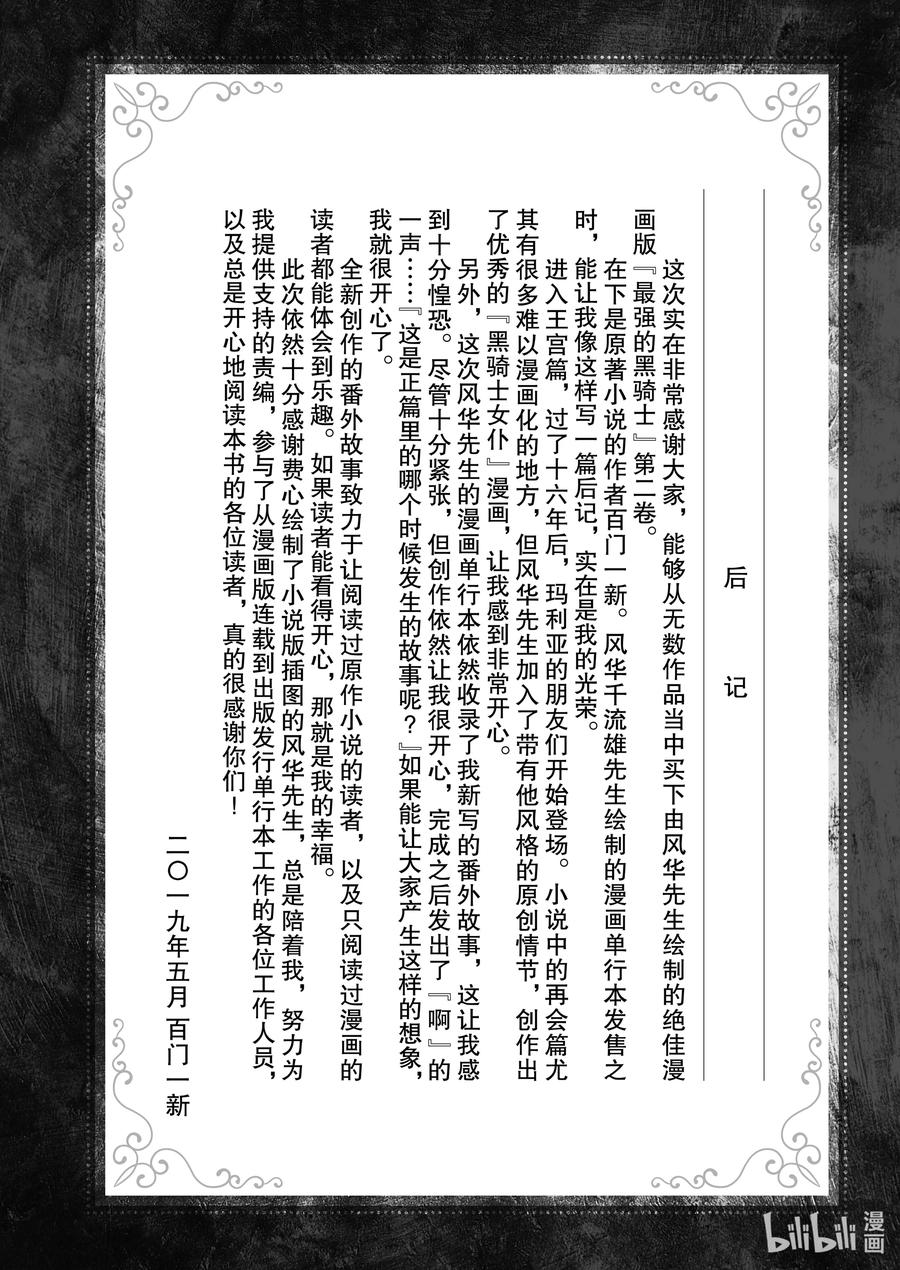 后记
这次实在非常感谢大家，能够从无数作品当中买下由风华先生绘制的绝佳漫
画版『最强的黑骑士』第二卷。
在下是原著小说的作者百门一新。风华千流雄先生绘制的漫画单行本发售之
时，能让我像这样写一篇后记，实在是我的光荣。
进入王宫篇，过了十六年后，玛利亚的朋友们开始登场。小说中的再会篇尤
其有很多难以漫画化的地方，但风华先生加入了带有他风格的原创情节，创作出
了优秀的『黑骑士女仆』漫画，让我感到非常开心。
另外，这次风华先生的漫画单行本依然收录了我新写的番外故事，这让我感
到十分惶恐。尽管十分紧张，但创作依然让我很开心，完成之后发出了『啊』的
一声……『这是正篇里的哪个时候发生的故事呢？』如果能让大家产生这样的想象，
我就很开心了。
全新创作的番外故事致力于让阅读过原作小说的读者，以及只阅读过漫画的
读者都能体会到乐趣。如果读者能看得开心，那就是我的幸福。
此次依然十分感谢费心绘制了小说版插图的风华先生，总是陪着我，努力为
我提供支持的责编，参与了从漫画版连载到出版发行单行本工作的各位工作人员，
以及总是开心地阅读本书的各位读者，真的很感谢你们！
二〇一九年五月 百门一新
bilibili 漫画